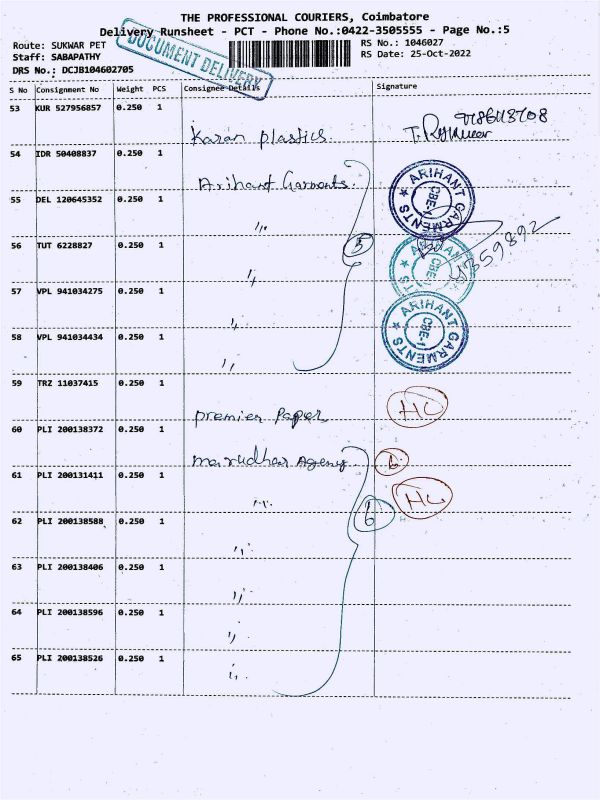 THE PROFESSIONAL COURIERS, Coimbatore
Delivery Runsheet - PCT - Phone No.:0422-3505555 - Page No.:5
Route: SUKWAR PET
RS No.: 1046027
Staff: SABAPATHY
RS Date: 25-Oct-2022
DRS No.: DCJB104602705
DOCUMENT DELIVERY
S No Consignment No Weight PCS Consignee Details Signature
53 KUR 527956857 0.250 1
Karan plastics
54 IDR 50408837 0.250 1
Arihant Garments
55 DEL 120645352 0.250 1
"
ARIHANT GARMENTS CBE-1
56 TUT 6228827 0.250 1
5
"
57 VPL 941034275 0.250 1
"
ARIHANT GARMENTS CBE-1
58 VPL 941034434 0.250 1
"
59 TRZ 11037415 0.250 1
premier Paper
HC
60 PLI 200138372 0.250 1
marudhar Agency
6
61 PLI 200131411 0.250 1
"
6
HC
62 PLI 200138588 0.250 1
"
63 PLI 200138406 0.250 1
"
64 PLI 200138596 0.250 1
"
65 PLI 200138526 0.250 1
"